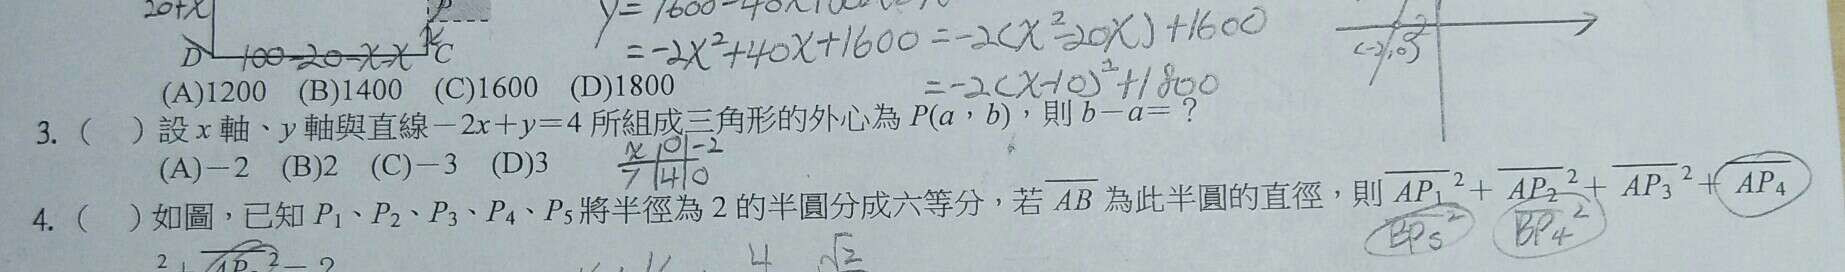 20+x
y=1600-40x
D 100-20-x-x C
=-2x²+40x+1600=-2(x²-20x)+1600
(-2,0)
=-2(x-10)²+1800
(A)1200 (B)1400 (C)1600 (D)1800
3. ( )設 x 軸、y 軸與直線－2x＋y＝4 所組成三角形的外心為 P(a，b)，則 b－a＝？
(A)－2 (B)2 (C)－3 (D)3
x 0 -2
y 4 0
4. ( )如圖，已知 P₁、P₂、P₃、P₄、P₅將半徑為 2 的半圓分成六等分，若 AB 為此半圓的直徑，則 AP₁²＋AP₂²＋AP₃²＋AP₄
BP₅² BP₄²
²＋ ²＝？
4 √2